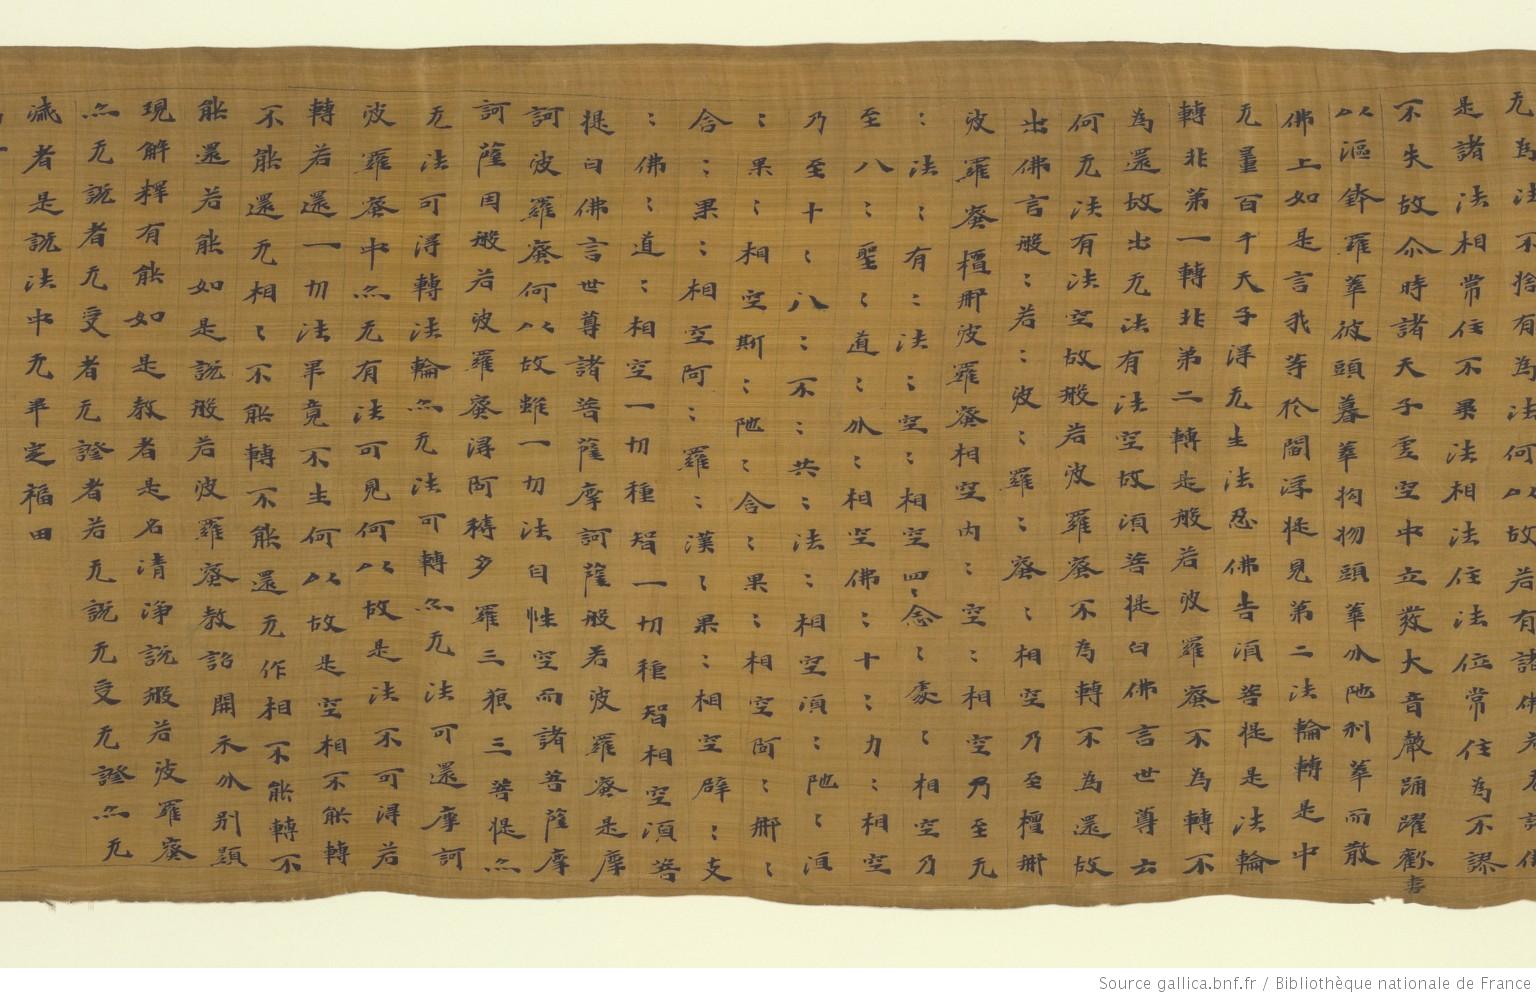 无為法不捨有為法何以故若有諸佛若无諸佛
是諸法相常住不異法相法住法位常住為不謬
不失故尒時諸天子虛空中立發大音聲踊躍歡喜
以漚鉢羅華彼頭暮華拘物頭華分陁利華而散
佛上如是言我等於閻浮提見第二法輪轉是中
无量百千天子得无生法忍佛告湏菩提是法輪
轉非第一轉非第二轉是般若波羅蜜不為轉不
為還故出无法有法空故湏菩提白佛言世尊云
何无法有法空故般若波羅蜜不為轉不為還故
出佛言般〻若〻波〻羅〻蜜〻相空乃至檀那
波羅蜜檀那波羅蜜相空內〻空〻相空乃至无
〻法〻有〻法〻空〻相空四〻念〻處〻相空乃
至八〻聖〻道〻分〻相空佛〻十〻力〻相空
乃至十〻八〻不〻共〻法〻相空湏〻陁〻洹
〻果〻相空斯〻陁〻含〻果〻相空阿〻那〻
含〻果〻相空阿〻羅〻漢〻果〻相空辟〻支
〻佛〻道〻相空一切種智一切種智相空湏菩
提白佛言世尊諸菩薩摩訶薩般若波羅蜜是摩
訶波羅蜜何以故雖一切法自性空而諸菩薩摩
訶薩因般若波羅蜜得阿耨多羅三藐三菩提亦
无法可得轉法輪亦无法可轉亦无法可還摩訶
波羅蜜中亦无有法可見何以故是法不可得若
轉若還一切法畢竟不生何以故是空相不能轉
不能還无相〻不能轉不能還无作相不能轉不
能還若能如是說般若波羅蜜教詔開示分別顯
現解釋有能如是教者是名清淨說般若波羅蜜
亦无說者无受者无證者若无說无受无證亦无
滅者是說法中无畢定福田
Source gallica.bnf.fr / Bibliothèque nationale de France